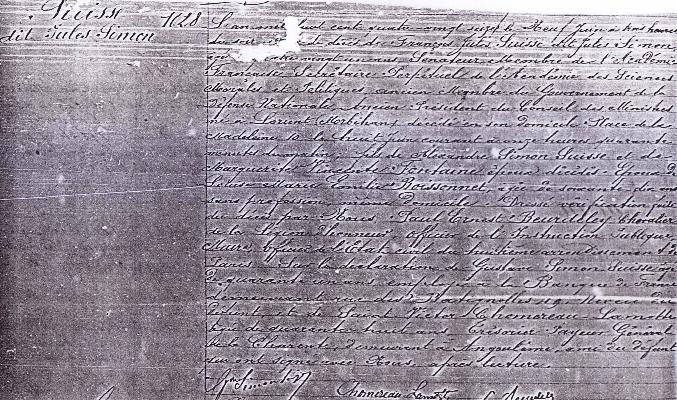 Suisse 1628
dit Jules Simon
L'an mil huit cent quatre vingt seize le Neuf Juin à trois heures
du soir, acte de décès de François Jules Suisse dit Jules Simon,
âgé de quatre vingt un ans, Sénateur, Membre de l'Académie
Française, Secrétaire Perpétuel de l'Académie des Sciences
Morales et Politiques, ancien Membre du Gouvernement de la
Défense Nationale, Ancien Président du Conseil des Ministres
né à Lorient (Morbihan) décédé en son domicile Place de la
Madeleine 10 le huit Juin courant à onze heures quarante
minutes du matin, fils de Alexandre Simon Suisse et de
Marguerite Vincente Fontaine époux décédés. Epoux de
Louise Marie Emilie Boissonnet, âgée de soixante dix ans
sans profession, même domicile. Dressé vérification faite
du décès par Nous, Paul Ernest Beurdeley, Chevalier
de la Légion d'honneur, Officier de l'Instruction Publique
Maire, officier de l'Etat civil du huitième arrondissement de
Paris. Sur la déclaration de Gustave Simon Suisse âgé
de quarante un ans employé à la Banque de France
demeurant rue des Batignolles 59 Neveu du
défunt et de Victor Chomereau Lamotte
âgé de quarante huit ans Trésorier Payeur Général
de la Charente demeurant à Angoulême, ami du défunt
qui ont signé avec Nous après lecture.
Gve Simon Chomereau Lamotte